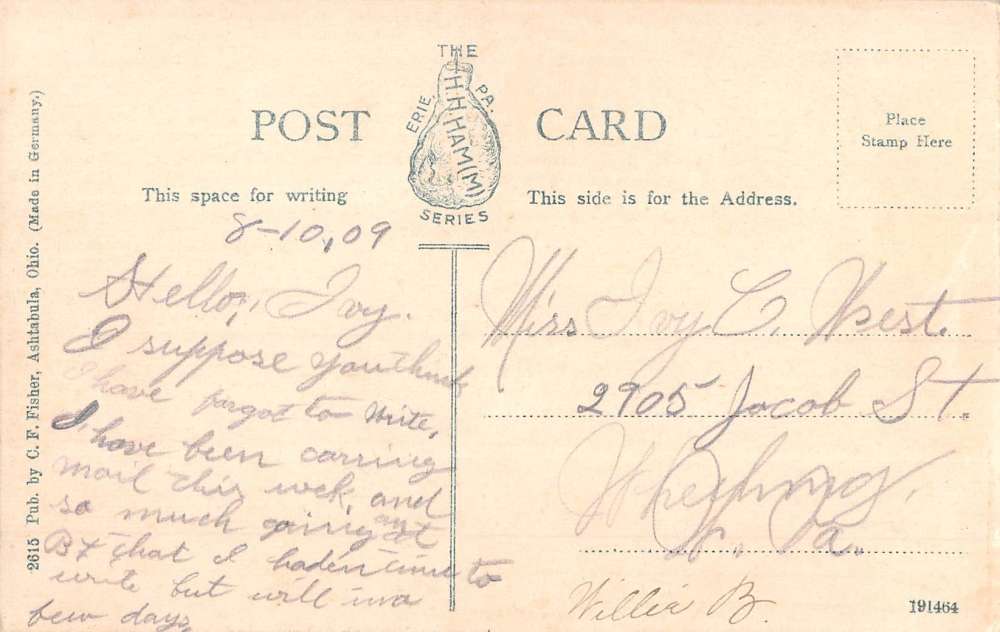 THE
H.H.HAM(M)
ERIE, PA.
SERIES
POST CARD
Place
Stamp Here
This space for writing
This side is for the Address.
2615 Pub. by C. F. Fisher, Ashtabula, Ohio. (Made in Germany.)
8-10,09
Hello, Ivy.
I suppose you think
I have forgot to write,
I have been carring
mail this week, and
so much going on at
B+ that I haden time to
write but will in a
few days,
Miss Ivy C. West.
2905 Jacob St.
Wheeling,
W. Va.
Willie B.
191464